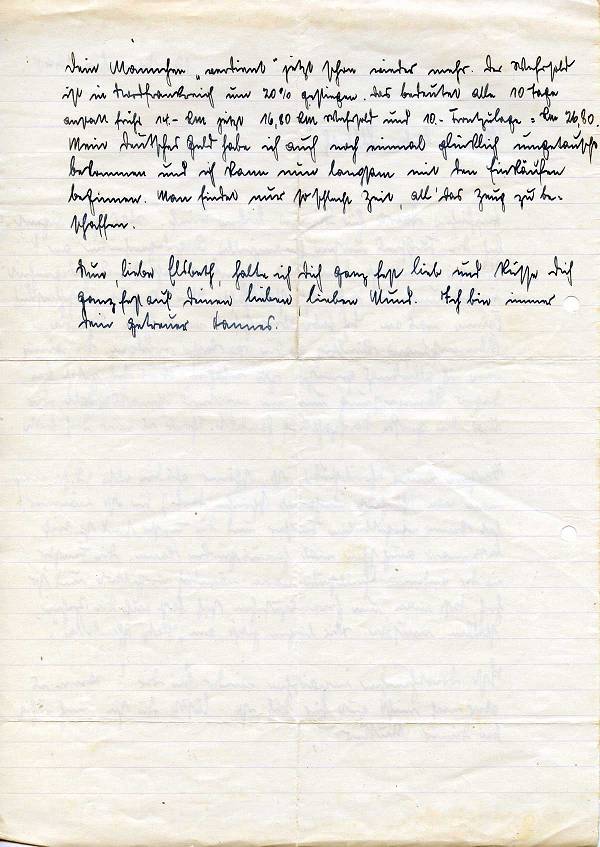 Dein Mannchen „verdient“ jetzt schon wieder mehr. Der Wehrsold
ist in Nordfrankreich um 20% gestiegen. Das bedeutet alle 10 Tage
anstatt früher 14.- RM jetzt 16,80 RM Wehrsold und 10.- Frontzulage = RM 26,80.
Mein deutsches Geld habe ich auch noch einmal glücklich umgetauscht
bekommen und ich kann nun langsam mit den Einkäufen
beginnen. Man findet nur so schlecht Zeit, all' das Zeug zu be-
schaffen.
Nun, liebe Elsbeth, halte ich Dich ganz fest lieb und küsse Dich
ganz fest auf Deinen lieben lieben Mund. Ich bin immer
Dein getreuer Hannes.